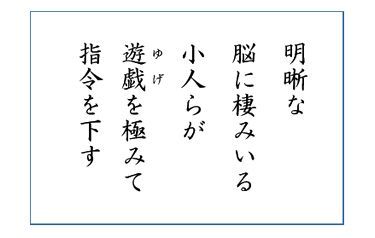 明晰な
脳に棲みいる
小人らが
遊戯を極みて
ゆげ
指令を下す